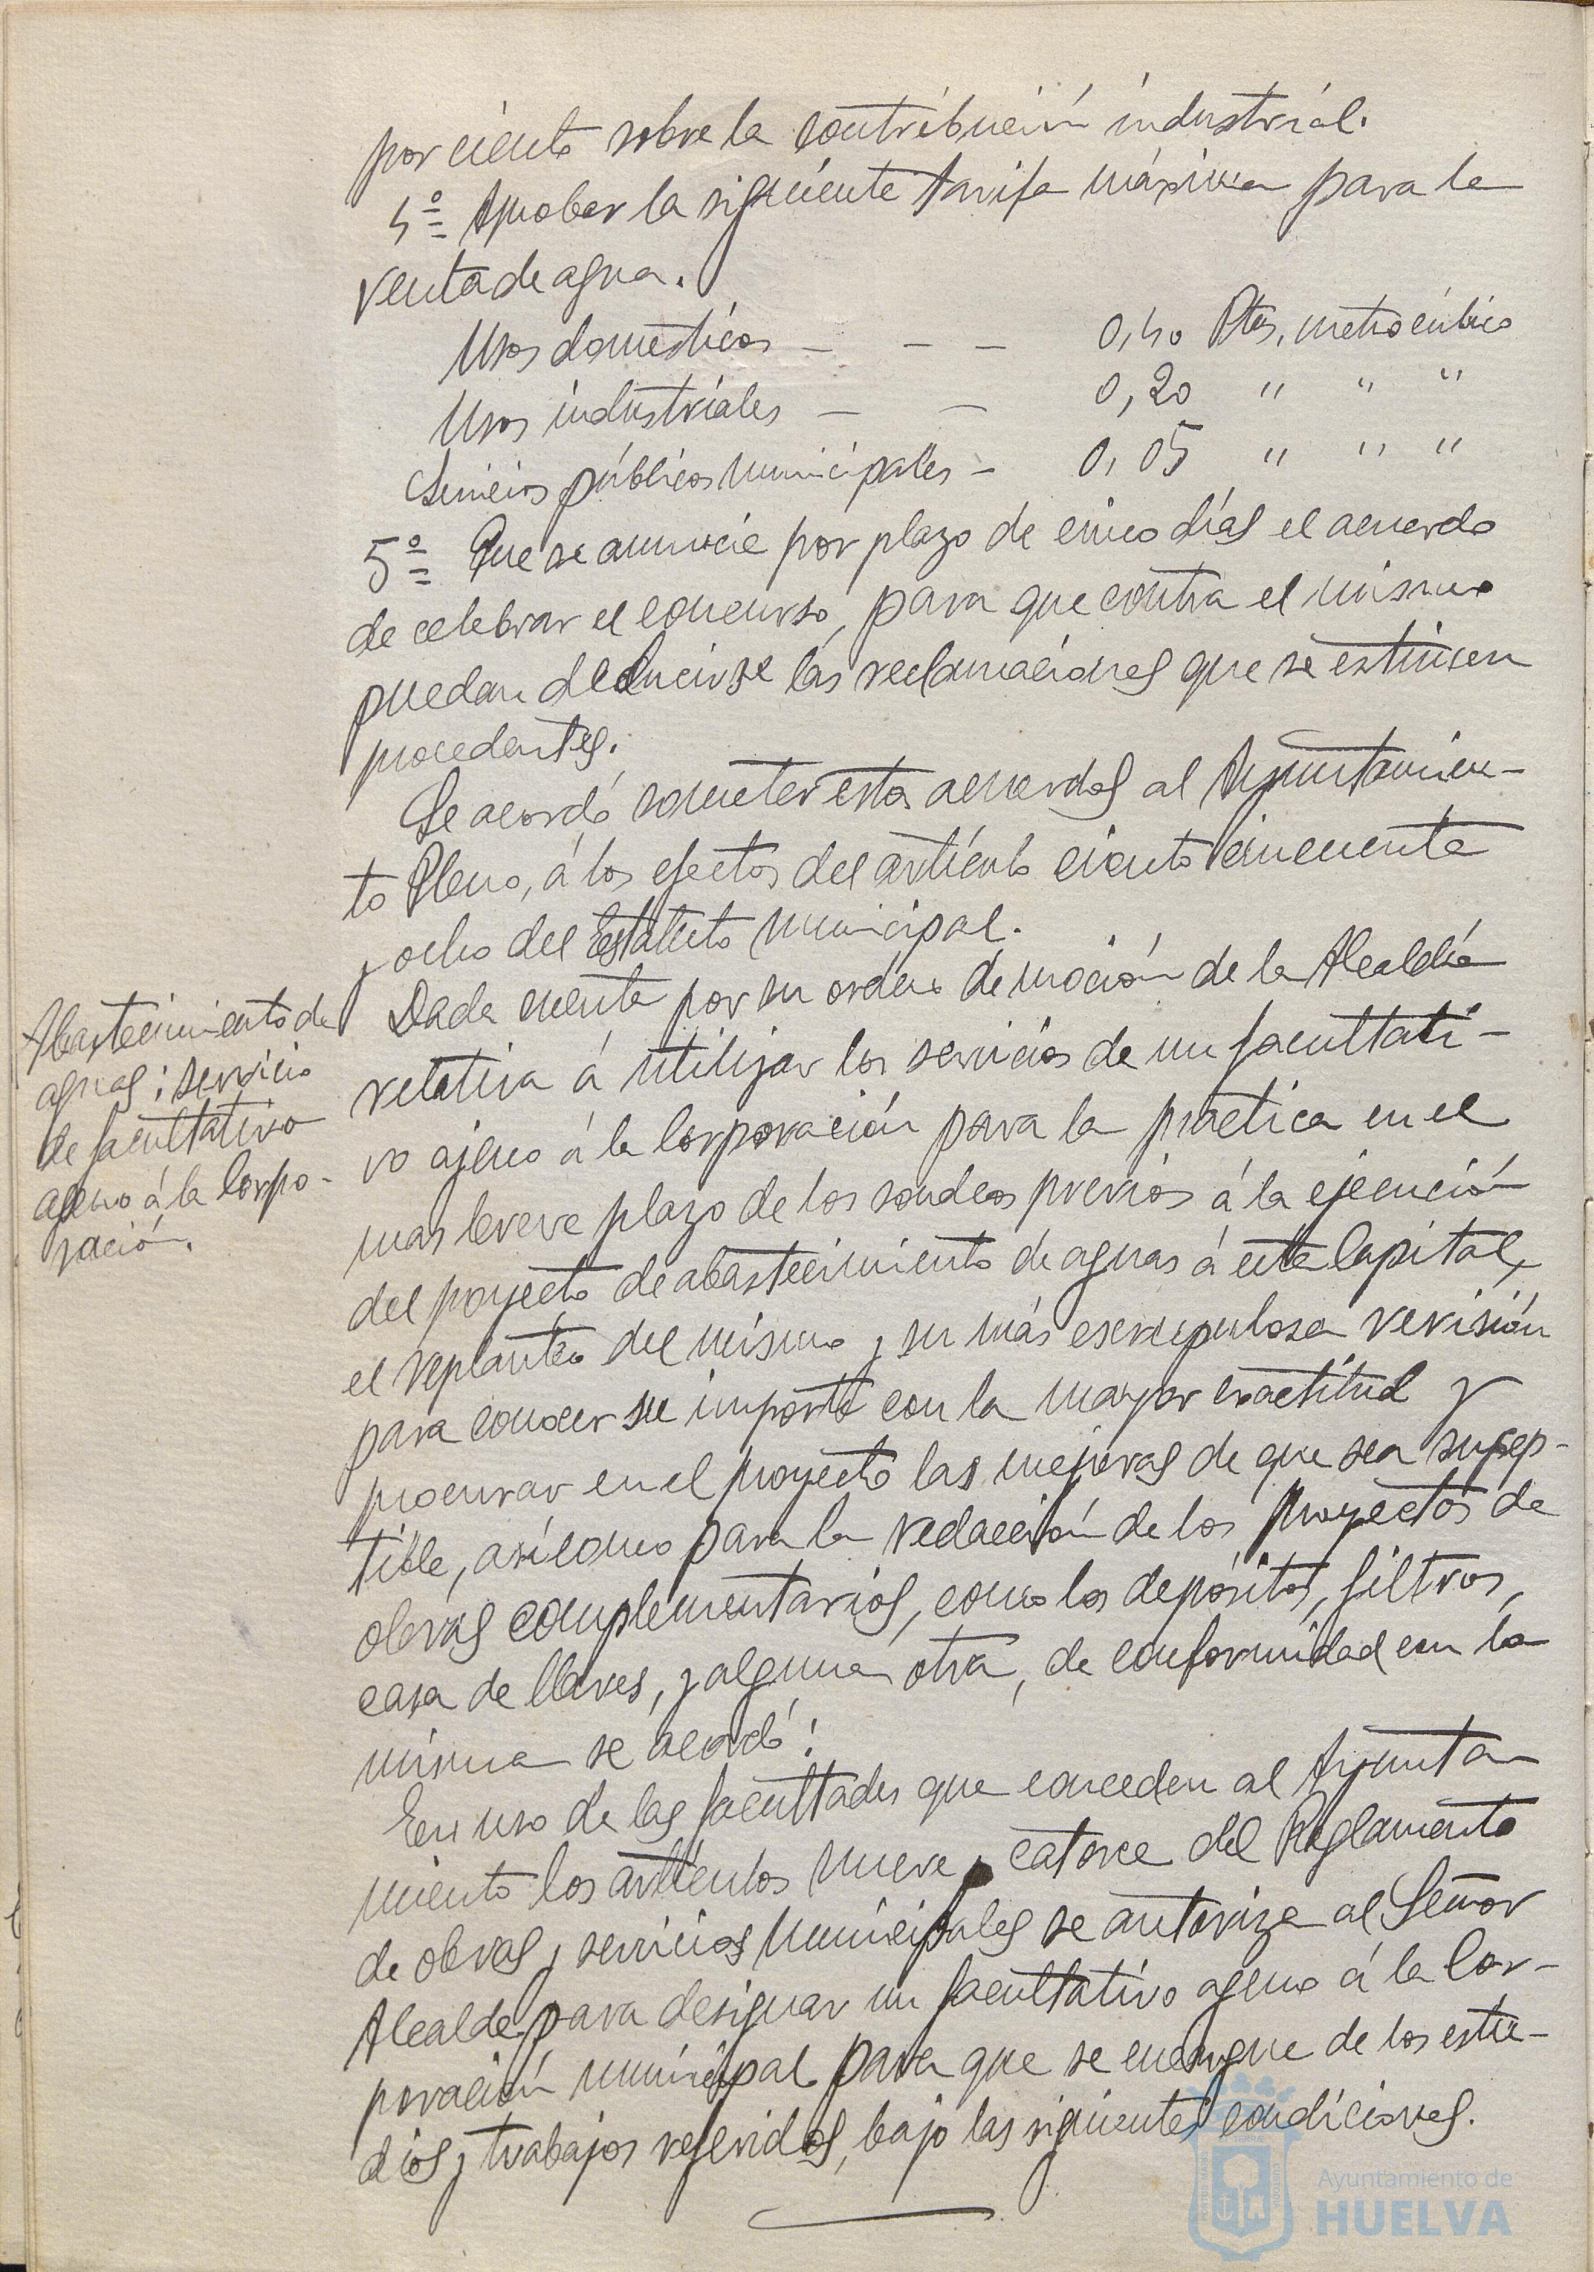 por ciento sobre la contribución industrial.
4º Aprobar la siguiente tarifa máxima para la
venta de agua.
Usos domésticos — — — 0,40 Ptas. metro cúbico
Usos industriales — — 0,20 " " "
Servicios públicos municipales — 0,05 " " "
5º Que se anuncie por plazo de cinco días el acuerdo
de celebrar el concurso, para que contra el mismo
puedan deducirse las reclamaciones que se estimen
procedentes.
Se acordó someter estos acuerdos al Ayuntamien-
to Pleno, á los efectos del artículo ciento cincuenta
y ocho del Estatuto Municipal.
Abastecimiento de
aguas: servicio
de facultativo
ageno á la Corpo-
ración.
Dada cuenta por su orden de moción de la Alcaldía
relativa á utilizar los servicios de un facultati-
vo ajeno á la Corporación para la práctica en el
mas breve plazo de los sondeos previos á la ejecución
del proyecto de abastecimiento de aguas á esta Capital,
el replanteo del mismo y su más escrupulosa revisión
para conocer su importe con la mayor exactitud y
procurar en el proyecto las mejoras de que sea sucep-
tible, así como para la redacción de los proyectos de
obras complementarios, como los depósitos, filtros,
casa de llaves, y alguna otra, de conformidad con la
misma se acordó:
En uso de las facultades que conceden al Ayunta
miento los artículos nueve y catorce del Reglamento
de obras y servicios Municipales se autoriza al Señor
Alcalde para designar un facultativo ageno á la Cor-
poración municipal para que se encargue de los estu-
dios y trabajos referidos, bajo las siguientes condiciones.
Ayuntamiento de
HUELVA